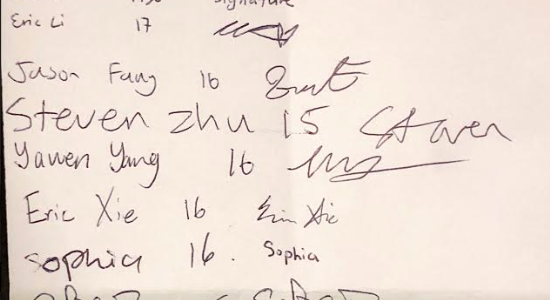 Age signature
Eric Li 17
Jason Fang 16
Steven zhu 15 Steven
Yawen Yang 16
Eric Xie 16 Eric Xie
sophia 16. Sophia